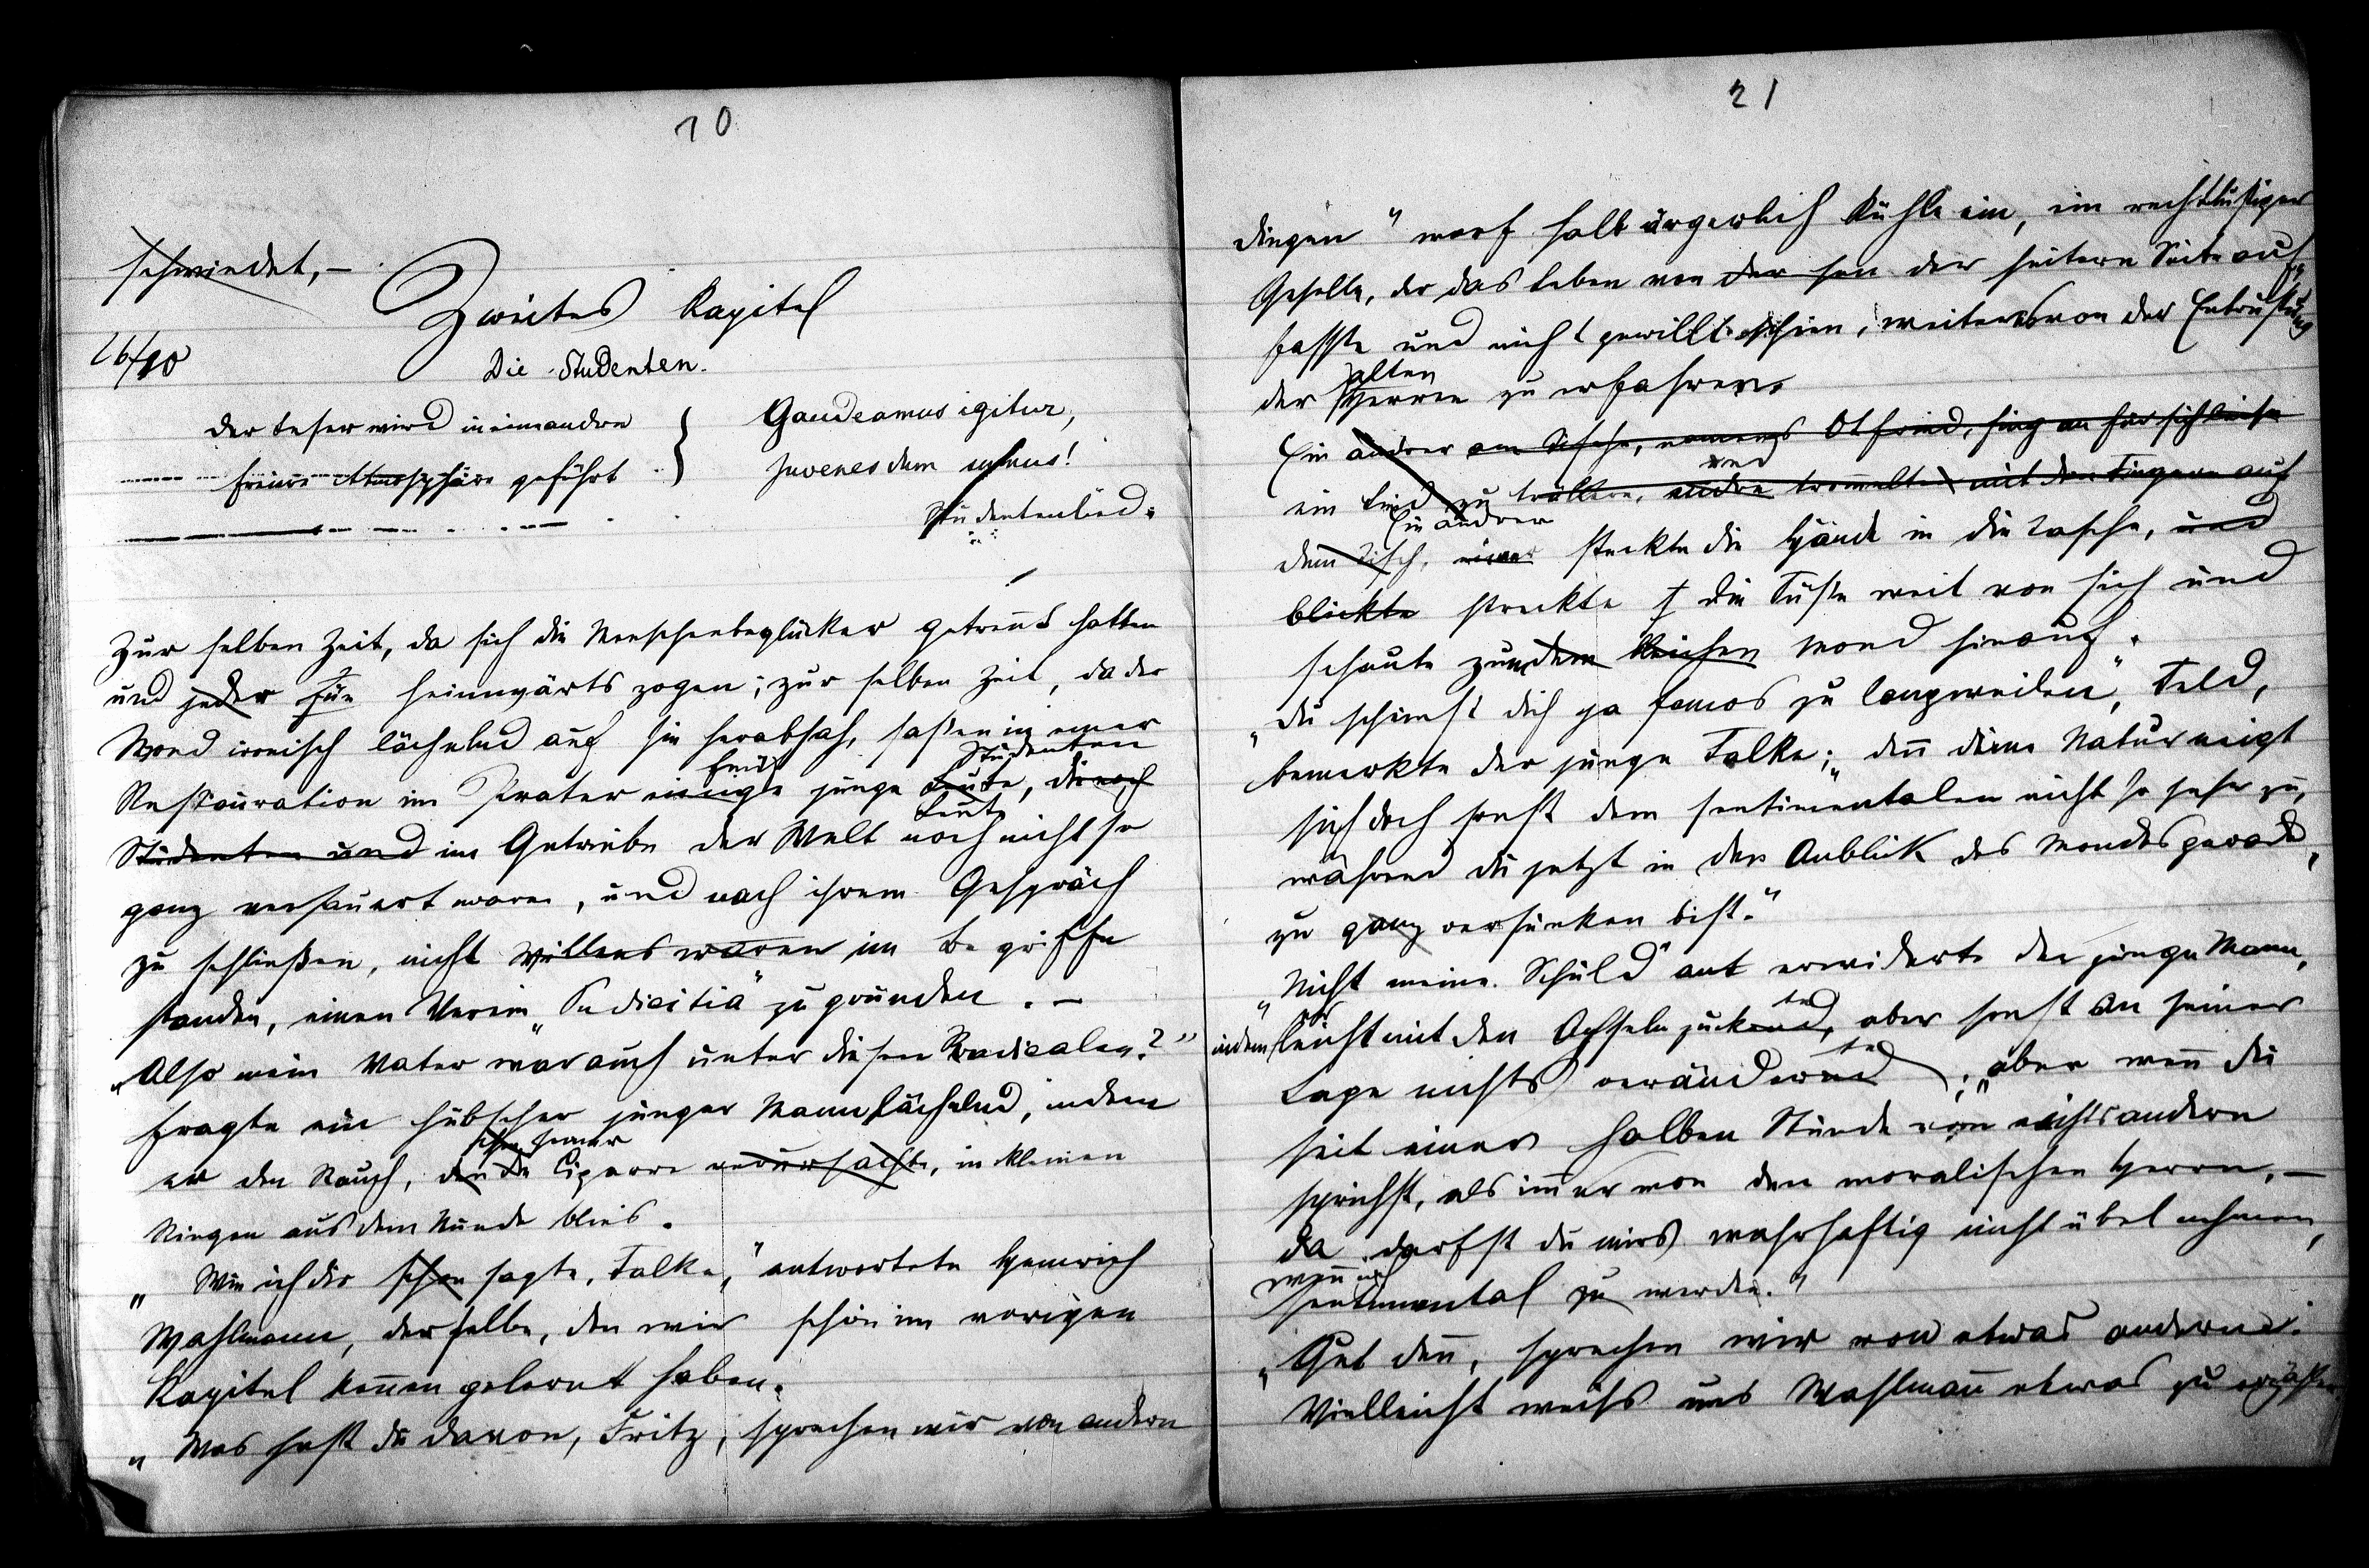 10
schwindet, –
Zweites Kapitel
26/10
Die Studenten.
Der Leser wird in eine andre
freiere Atmosphäre geführt
Gaudeamus igitur,
juvenes dum sumus!
Studentenlied.
Zur selben Zeit, da sich die Menschenbeglücker getrennt hatten
und jeder für heimwärts zogen; zur selben Zeit, da der
Mond ironisch lächelnd auf sie herabsah, saßen in einer
Studenten
Restauration im Prater einige junge Leute, die noch
Leute
Studenten und im Getriebe der Welt noch nicht so
ganz versauert waren, und nach ihrem Gespräch
zu schließen, nicht Willens waren im Begriffe
standen, einen Verein „Pudicitia" zu gründen. –
„Also mein Vater war auch unter diesen Radicalen?"
fragte ein hübscher junger Mann lächelnd, indem
seiner
er den Rauch, den die Cigarre verursachte, in kleinen
Ringen aus dem Munde blies.
„Wie ich dir schon sagte, Falke," antwortete Heinrich
Wahlmann, derselbe, den wir schon im vorigen
Kapitel kennen gelernt haben.
„Was hast du davon, Fritz, sprechen wir von andern
21
Dingen" warf halb ärgerlich Kühle ein, ein recht lustiger
Geselle, der das Leben von der hei der heitern Seite auf
fasste und nicht gewillt schien, weiteres von der Entrüstung
alten
der Herren zu erfahren.
Ein andrer am Tische, namens Otfried, fing an für sich leise
und
ein Lied zu trällern, andre trommelten mit den Fingern auf
Ein andrer
dem Tisch, einer steckte die Hände in die Tasche, und
blickte streckte die Füße weit von sich und
schaute zum dem bleichen Mond hinauf.
„Du scheinst dich ja famos zu langweilen", Feld,
bemerkte der junge Falke; „denn deine Natur neigt
sich doch sonst dem sentimentalen nicht so sehr zu,
während du jetzt in den Anblick des Mondes gerade
zu ganz versunken bist."
„Nicht meine Schuld" ant erwiderte der junge Mann,
te
indem er leicht mit den Achseln zuckend, aber sonst an seiner
te
Lage nichts verändernd; „aber wenn du
seit einer halben Stunde von nichts andern
sprichst, als immer von den moralischen Herrn, –
da darfst du mirs wahrhaftig nicht übel nehmen,
wenn ich
sentimental zu werden."
„Gut denn, sprechen wir von etwas anderm.
Vielleicht weiß uns Wahlmann etwas zu erzählen